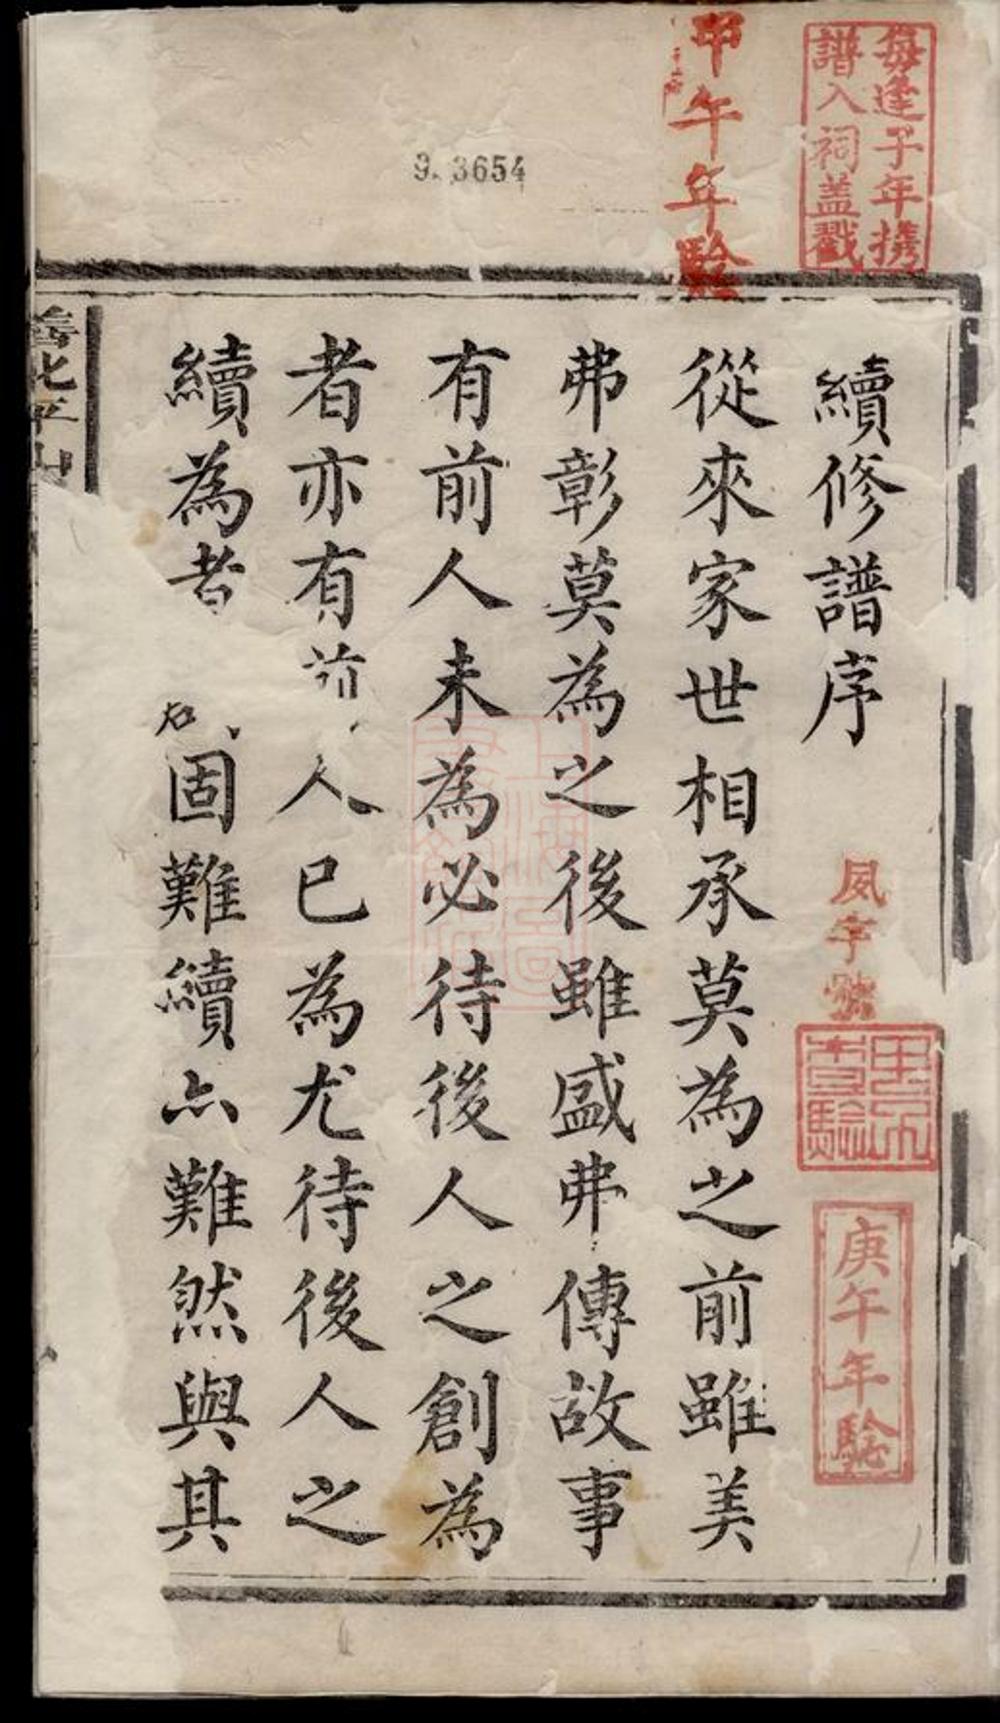 每逢子年携
譜入祠盖戳
甲午年驗
9. 3654
續修譜序
凤字號
庚午年驗
從來家世相承莫為之前雖美
弗彰莫為之後雖盛弗傳故事
有前人未為必待後人之創為
者亦有前人已為尤待後人之
續為者 固難續亦難然與其
善化平山